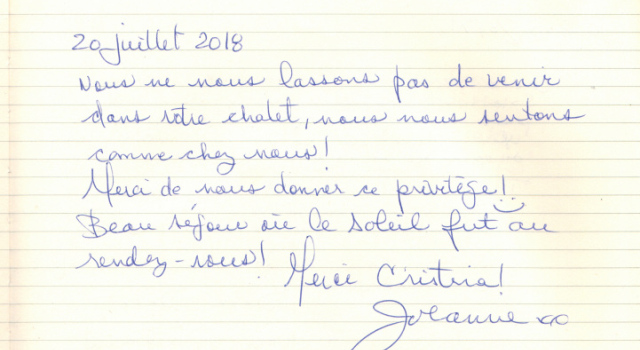 20 juillet 2018
Nous ne nous lassons pas de venir
dans votre chalet, nous nous sentons
comme chez nous!
Merci de nous donner ce privilège!
Beau séjour où le soleil fut au
rendez-vous! Merci Cristina!
Johanne xo